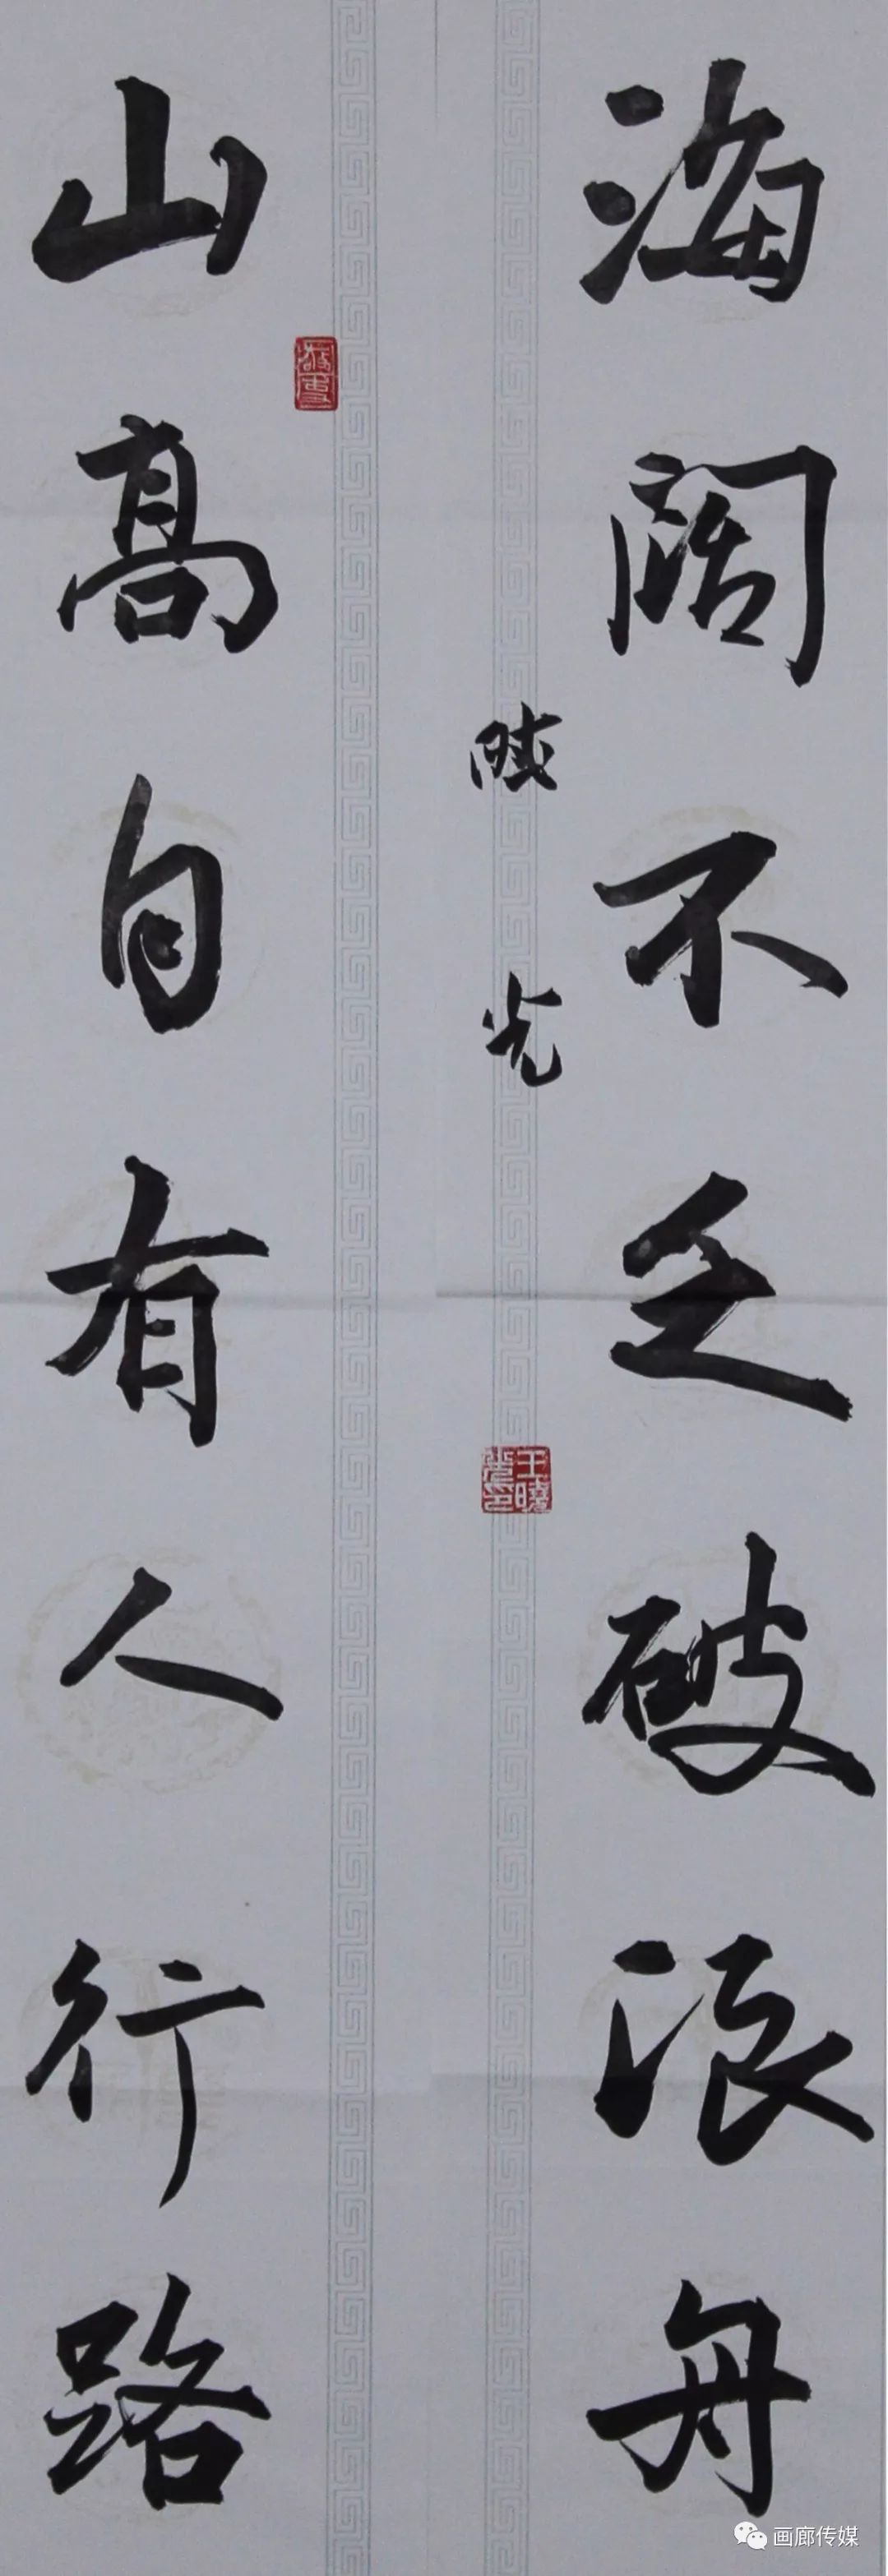 山高自有人行路
海阔不乏破浪舟
晓光
王曉光印
画廊传媒